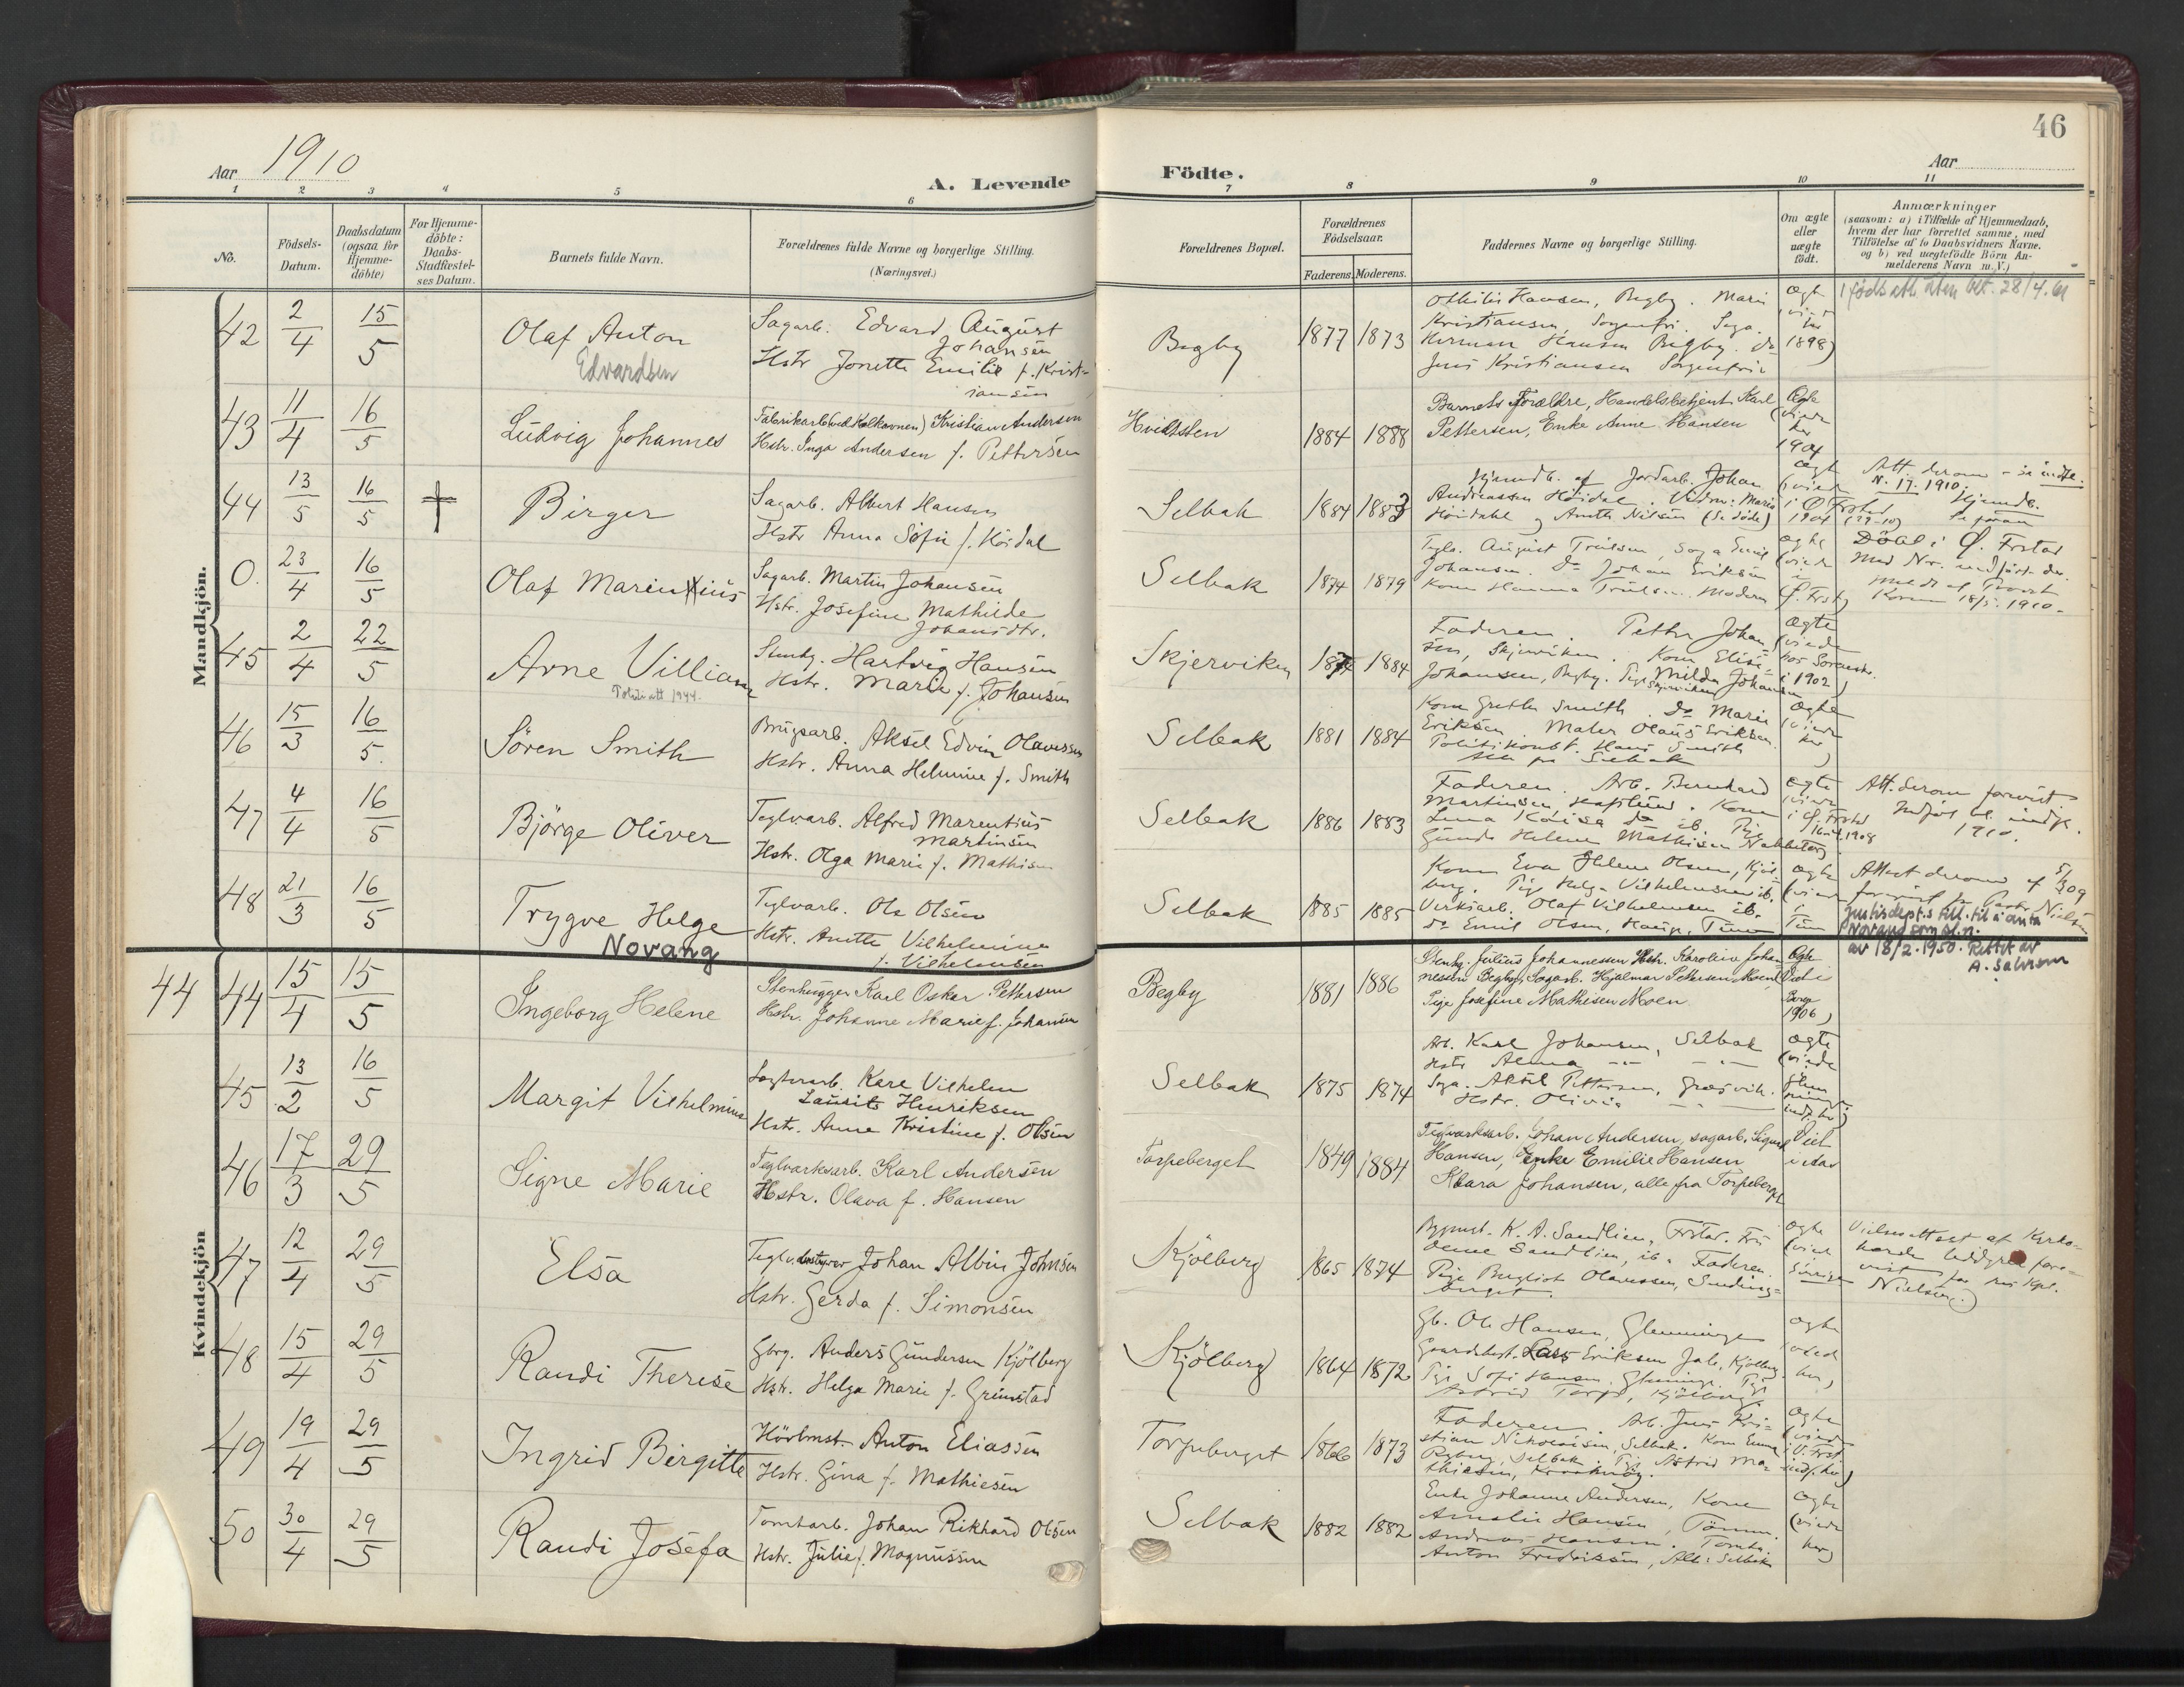 46
Aar 1910
A. Levende
Födte.
Aar
1 2 3 4 5 6 7 8 9 10 11
No.
Födsels-
Datum.
Daabsdatum
(ogsaa for
Hjemme-
döbte)
For Hjemme-
döbte:
Daabs-
Stadfæstel-
ses Datum.
Barnets fulde Navn.
Forældrenes fulde Navne og borgerlige Stilling.
(Næringsvei.)
Forældrenes Bopæl.
Forældrenes
Födselsaar.
Faderens. Moderens.
Faddernes Navne og borgerlige Stilling.
Om ægte
eller
uægte
födt.
Anmærkninger
(saasom: a) i Tilfælde af Hjemmedaab,
hvem der har forrettet samme, med
Tilföielse af to Daabsvidners Navne.
og b) ved uægtefödte Börn An-
melderens Navn m. V.)
Mandkjön.
42 2/4 15/5 Olaf Anton
Edvardsen
Sagarb. Edvard August
Johansen
Hstr Jonette Emilie f. Krist-
iansen
Begby 1877 1873
Othilie Hansen, Begby. Marie
Kristiansen, Sorgenfri. Saga.
Herman Hansen Begby. do
Jens Kristiansen Sorgenfri
Ægte
1898)
28/4.61
43 11/4 16/5 Ludvig Johannes
Fabrikarb (ved Kalkovnen) Kristian Andersen
Hstr. Inga Andersen f. Pettersen
Hvidtsten 1884 1888
Barnets Forældre, Handelsbetjent Karl
Pettersen, Enke Anne Hansen
Ægte
(viede
her
1904
44 13/5 16/5 † Birger
Sagarb. Albert Hansen
Hstr Anna Sofie f. Höidal
Selbak 1884 1883
Hjemmdb. af Jordarb. Johan
Andreassen Höidal. Vidner: Marie
Höidahl og Anette Nilsen (Se döde)
ægte
(viede
i Ö Frstad
1904 (29-10)
Att. derom - se indtr.
N. 17. 1910.
Hjemdb.
0. 23/4 16/5 Olaf Marentius
Sagarb. Martin Johansen
Hstr. Josefine Mathilde
Johansdtr.
Selbak 1874 1879
Teglv. August Truelsen, Saga Emil
Johansen. Do Johan Eriksen
Kone Hanna Truelsen. Moderen
ægte
(viede
i
Ö. Frst)
Döbt i Ö. Frstad
med Nr. indfört der.
18/5. 1910.
45 2/4 22/5 Arne Villiam
1944.
Stenhg. Hartvig Hansen
Hstr. Marie f. Johansen
Skjerviken 1874 1884
Faderen. Petter Johan
sen, Skjerviken. Kone Elise
Johansen, Begby. Pige Milda Johansen
Skjerviken
ægte
(viede
hos Sorenskr.
i 1902)
46 15/3 16/5. Sören Smith
Brugsarb. Aksel Edvin Olavesen
Hstr. Anna Helmine f. Smith
Selbak 1881 1884
Kone Grethe Smith. Do Marie
Eriksen. Maler Olaus Eriksen.
Politikonst. Hans Smith
alle fra Selbak
ægte
(viede
her)
47 4/4 16/5 Björge Oliver
Teglvarb. Alfred Marentius
Martinsen
Hstr. Olga Marie f. Mathisen
Selbak 1886 1883
Faderen. Arb. Bernhard
Martinsen, Kone
Lena Lovise do ib. Pige
Gunda Helene Mathisen
ægte
(viede
i Ö. Frstad
1908
Att. derom forevist.
1910.
48 21/3 16/5 Trygve Helge
Novang
Teglvarb. Ole Olsen
Hstr. Anette Vilhelmine
f. Vilhelmsen
Selbak 1885 1885
Kone Eva Helene Olsen, Kjöl-
berg. Pige Helga Vilhelmsen ib.
Verksarb. Olaf Vilhelmsen ib.
do Emil Olsen, Hauge, Tune
ægte
(viede
i
Tune
Attest derom af 5/4 09
forevist for Pastor Nielsen
Justisdept.s till. til å anta
Novang som sl.n.
av 18/2. 1950. Rettet av
A. Salvesen
Kvindekjön
44 44 15/4 15/5 Ingeborg Helene
Stenhugger Karl Oskar Pettersen
Hstr. Johanne Marie f. Johansen
Begby 1881 1886
Stenhg. Julius Johannessen Hstr. Karoline Johan
nesen Begby, Sagarb. Hjalmar Pettersen Moen
Pige Josefine Mathisen Moen
Ægte
Viet i
Borge
1906)
45 13/2 16/5 Margit Vilhelmine
Karl Vilhelm
Laurits Henriksen
Hstr. Anne Kristine f. Olsen
Selbak 1875 1874
Arb. Karl Johansen, Selbak
Hstr Alma -"- -"-
Saga. Aksel Pettersen, Græsvik.
Hstr. Olivia -"-
ægte
(viede
46 17/3 29/5 Signe Marie
Teglværksarb. Karl Andersen
Hstr. Olava f. Hansen
Torpeberget 1849 1884
Teglværksarb. Johan Andersen, sagarb. Sigurd
Hansen, Enke Emilie Hansen
Klara Johansen, alle fra Torpeberget
Viet
47 12/4 29/5 Elsa
Teglv.bestyrer Johan Albin Johnsen
Hstr. Gerda f. Simonsen
Kjölberg 1865 1874
Bygmst. K. A. Sandlien, Frstad. Fru
Sandlien, ib. Faderen.
Pige Olaussen,
ægte
(viede
Sverige
Vielsesattest af Kyrko-
herde fore-
vist for res. Kpl.
Nielsen.)
48 15/4 29/5 Randi Therese
Gbrg. Anders Gundersen Kjölberg
Hstr. Helga Marie f. Grimstad
Kjölberg 1864 1872
Gb. Ole Hansen, Glemminge
Gaardbest. Lars Eriksen Jale, Kjölberg.
Pige Sofie Hansen Glemminge. Pige
Astrid Torp, Kjölberg.
ægte
(viede
her)
49 19/4 29/5 Ingrid Birgitte
Hövlmst. Anton Eliassen
Hstr. Gina f. Mathiesen
Torpeberget 1866 1873
Faderen. Arb. Jens Kri-
stian Nikolaisen, Selbak. Kone Emma
Selbak. Pige Astrid Ma-
thiesen,
ægte
(viede
i V. Frst
indf. her)
50 30/4 29/5 Randi Josefa
Tomtarb. Johan Rikhard Olsen
Hstr. Julie f. Magnussen
Selbak 1882 1882
Enke Johanne Andersen, Kone
Amalie Hansen, Tömm.
Andreas Hansen. Tomta.
Anton Fredriksen, Alle: Selbak
ægte
(viede
her)